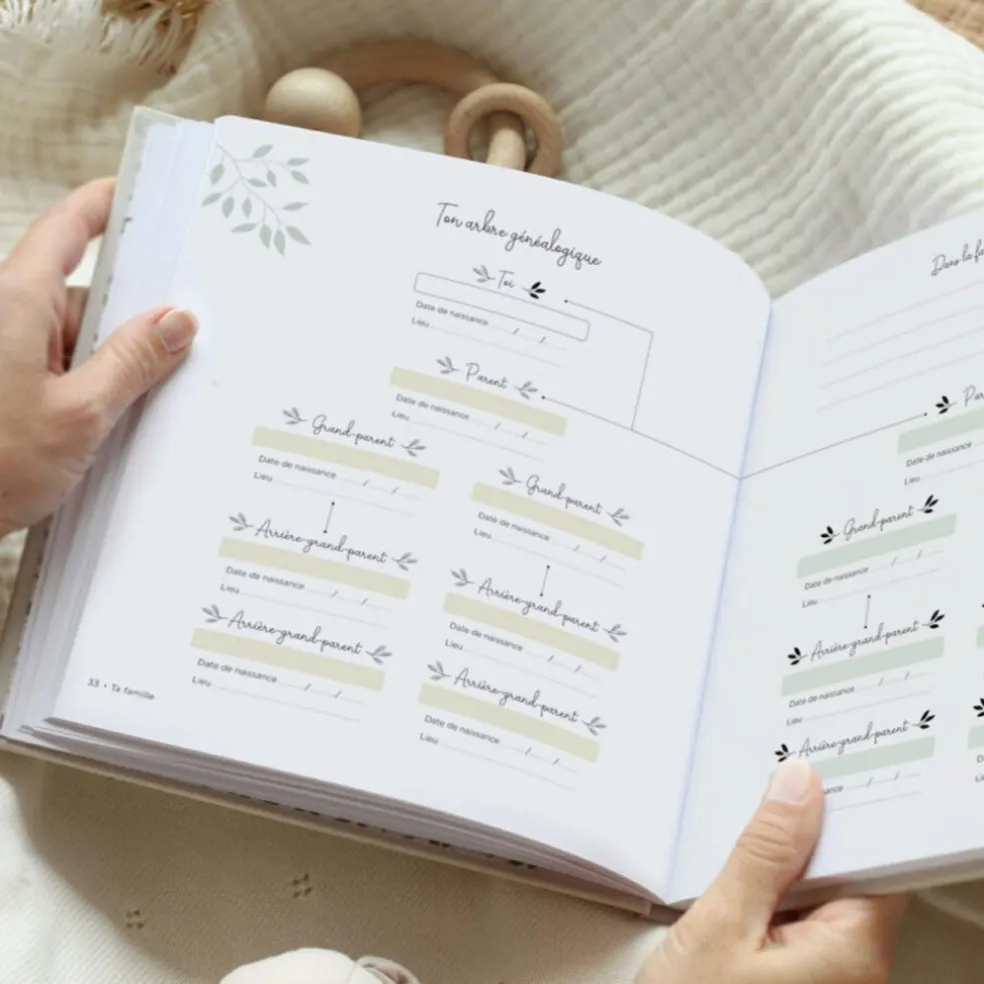 Ton arbre généalogique
Toi
Date de naissance / /
Lieu
Parent
Date de naissance / /
Lieu
Grand-parent
Date de naissance / /
Lieu
Arrière-grand-parent
Date de naissance / /
Lieu
Arrière-grand-parent
Date de naissance / /
Lieu
Grand-parent
Date de naissance / /
Lieu
Arrière-grand-parent
Date de naissance / /
Lieu
Arrière-grand-parent
Date de naissance / /
Lieu
33 • Ta famille
Dans la fa
Par
Date de naissance
Lieu
Grand-parent
Date de naissance / /
Lieu
Arrière-grand-parent
Date de naissance / /
Lieu
Arrière-grand-parent
ance / /